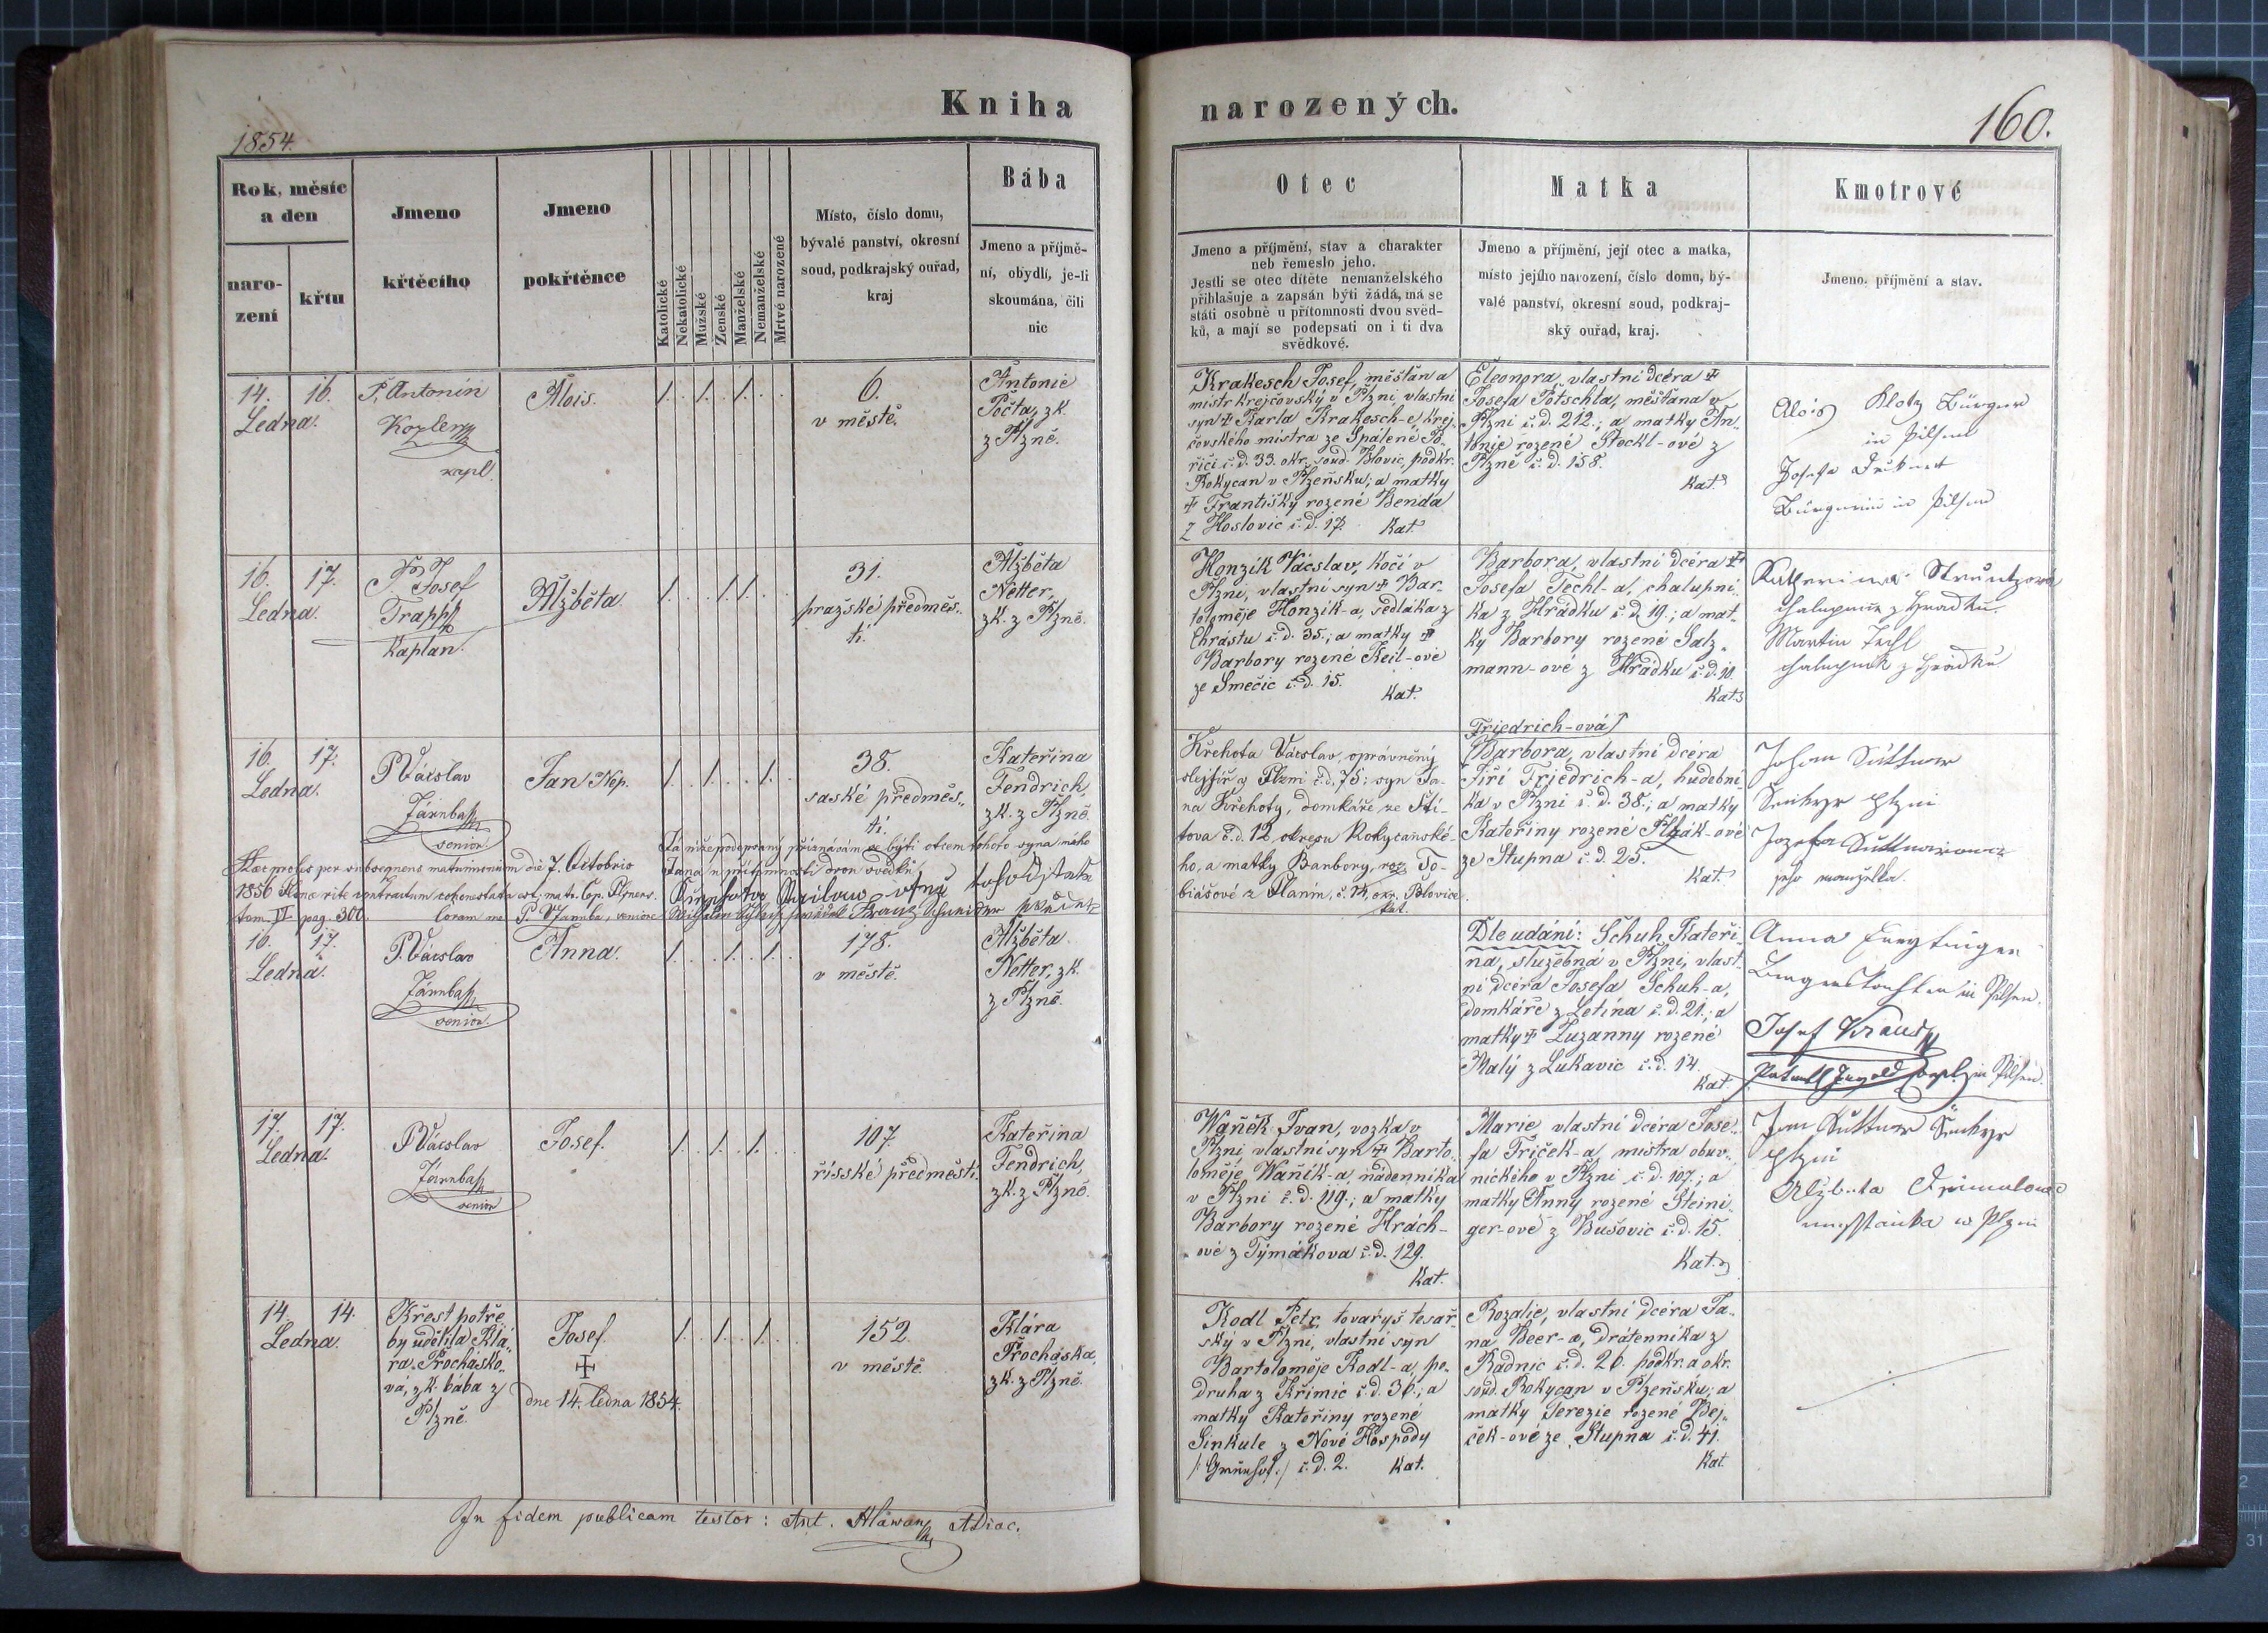 Kniha
narozených.
1854.
160.
Rok, měsíc
a den
naro-
zení
křtu
Jmeno
křtěcího
Jmeno
pokřtěnce
Katolické
Nekatolické
Mužské
Ženské
Manželské
Nemanželské
Mrtvé narozené
Místo, číslo domu,
bývalé panství, okresní
soud, podkrajský ouřad,
kraj
Bába
Jmeno a příjmě-
ní, obydlí, je-li
skoumána, čili
nic
Otec
Jmeno a příjmění, stav a charakter
neb řemeslo jeho.
Jestli se otec dítěte nemanželského
přihlašuje a zapsán býti žádá, má se
státi osobně u přítomnosti dvou svěd-
ků, a mají se podepsati on i ti dva
svědkové.
Matka
Jmeno a příjmění, její otec a matka,
místo jejího narození, číslo domu, bý-
valé panství, okresní soud, podkraj-
ský ouřad, kraj.
Kmotrové
Jmeno, příjmění a stav.
14. 16.
Ledna.
P. Antonín
kapl.
Alois.
1. . 1. . 1. .
6.
v městě.
Antonie
Počta, zk.
z Plzně.
Krakesch Josef, měšťan a
mistr krejčovský v Plzni, vlastní
syn ‡ Karla Krakesch-e, krej-
čovského mistra ze Spálené Po-
říčí č.d. 33. okr. soud. Blovic, podkr.
Rokycan v Plzeňsku; a matky
‡ Františky rozené Benda
z Hoslovic č.d. 17. Kat.
Eleonora, vlastní dcéra ‡
Josefa Pötschla, měšťana v
Plzni č.d. 212.; a matky An-
tonie rozené Steckl-ové z
Plzně č.d. 158.
Kat.
Alois Klotz Bürger
in Pilsen
Josefa
Bürgerin in Pilsen
16. 17.
Ledna.
P. Josef
Trapp
Kaplan.
Alžběta
1. . . 1. 1. . .
31.
pražské předměs-
tí.
Alžběta
Netter,
zk. z Plzně.
Honzík Václav, kočí v
Plzni, vlastní syn ‡ Bar-
toloměje Honzík-a, sedláka z
Chrástu č.d. 35.; a matky ‡
Barbory rozené Keil-ové
ze Smečic č.d. 15.
Kat.
Barbora, vlastní dcéra ‡
Josefa Techl-a, chalupní-
ka z Hrádku č.d. 19.; a mat-
ky Barbory rozené Salz-
mann-ové z Hrádku č.d. 10.
Kat.
Katherina
z Hradku.
Martin Techl
chalupnik z Hradku
16. 17.
Ledna.
P. Václav
Járnba
senior.
Jan Nep.
1. . 1. . . 1. .
38.
saské předměs-
tí.
Kateřina
Fendrich,
zk. z Plzně.
Křehota Václav, oprávněný
v Plzni č.d. 75; syn Ja-
na Křehoty, domkáře ze Ští-
tova č.d. 12 okresu Rokycanské-
ho, a matky Barbory, roz. To-
biášové z Planin, č. 14, okr. Blovice.
kat.
Friedrich-ová
Barbora, vlastní dcéra
Jiří Friedrich-a, hudební-
ka v Plzni č.d. 38.; a matky
Kateřiny rozené Plzák-ové
ze Stupna č.d. 25.
Kat.
Johann Süttner
Šenkyr Plzni
Jozefa
jeho manželka.
Haec proles per subsequens matrimonium die 7. Octobris
1856
tom. VI pag. 300.
coram me P. Járnba, seniore
Já níže podepsaný přiznávám se býti otcem tohoto syna mého
Jana u přítomnosti dvou svědků
16. 17.
Ledna.
P. Václav
Járnba
senior.
Anna.
1. . . 1. . 1. .
178.
v městě.
Alžběta
Netter, zk.
z Plzně.
Dle udání: Schuh Kateři-
na, služebna v Plzni, vlast-
ní dcéra Josefa Schuh-a,
domkáře z Letína č.d. 21.; a
matky ‡ Zuzanny rozené
Malý z Lukavic č.d. 14.
Kat.
Anna
in Pilsen.
Josef Kraus
in Pilsen.
17. 17.
Ledna.
P. Václav
Járnba
senior
Josef.
1. . 1. . 1. . .
107.
říšské předměstí.
Kateřina
Fendrich,
zk. z Plzně.
Waněk Ivan, vozka v
Plzni, vlastní syn ‡ Barto-
loměje Waněk-a, nádenníka
v Plzni č.d. 119.; a matky
Barbory rozené Hrách-
ové z Týmákova č.d. 129.
Kat.
Marie, vlastní dcéra Jose-
fa Triček-a, mistra obuv-
nického v Plzni č.d. 107.; a
matky Anny rozené Steini-
ger-ové z Bušovic č.d. 15.
Kat.
Jan Süttner Šenkyr
Plzni
Alzbeta
w Plzni
14. 14.
Ledna.
Křest potře-
by udělila Klá-
ra Procházko-
vá, zk. bába z
Plzně.
Josef.
‡
dne 14. ledna 1854.
1. . 1. . 1. . .
152.
v městě.
Klára
Procháska,
zk. z Plzně.
Kodl Petr, tovaryš tesař-
ský v Plzni, vlastní syn
Bartoloměje Kodl-a, po-
druha z Křimic č.d. 36.; a
matky Kateřiny rozené
Sinkule z Nové Hospody
/: Grünhof :/ č.d. 2. Kat.
Rozalie, vlastní dcéra Ja-
na Beer-a, drátenníka z
Radnic č.d. 26. podkr. a okr.
soud. Rokycan v Plzeňsku; a
matky Terezie rozené Bej-
ček-ové ze Stupna č.d. 41.
Kat.
In fidem publicam testor: Ant. Hlawan ADiac.